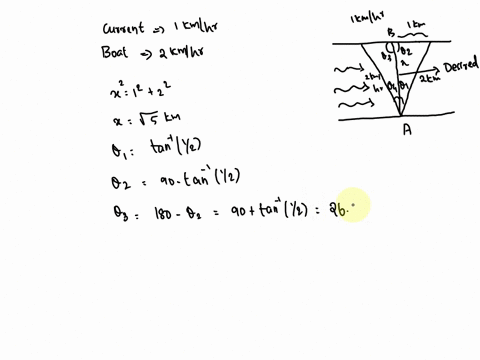 Current => 1 km/hr
Boat => 2 km/hr
x² = 1² + 2²
x = √5 km
θ1 = tan⁻¹(1/2)
θ2 = 90 - tan⁻¹(1/2)
θ3 = 180 - θ2 = 90 + tan⁻¹(1/2) = 26.
1 km/hr
1 km
B
θ3
θ2
x
2km/
hr
θ4
θ1
2 km
Desired
A